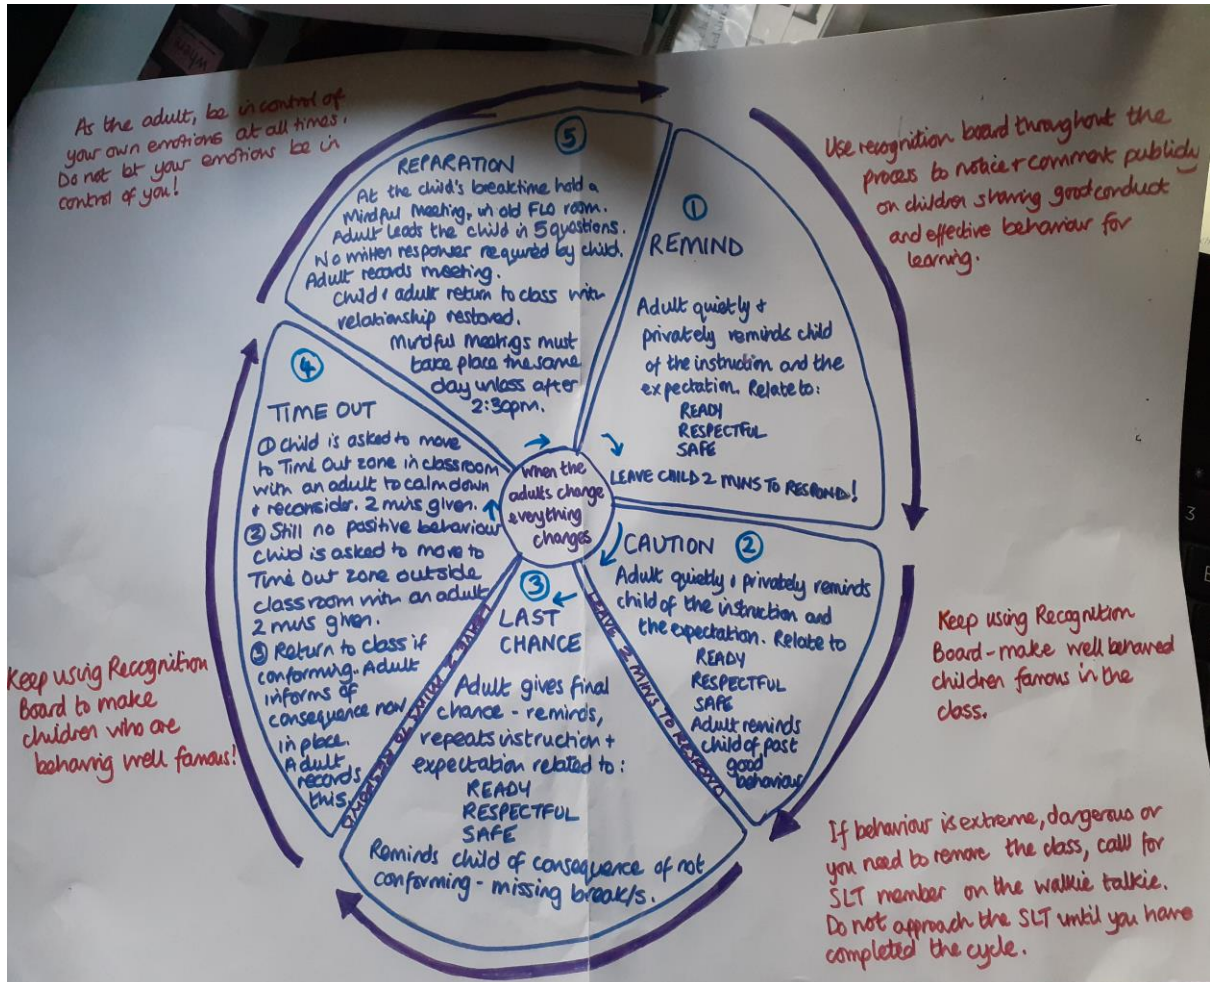 when
As the adult, be in control of
your own emotions at all times.
Do not let your emotions be in
control of you!
Use recognition board throughout the
process to notice + comment publicly
on children sharing good conduct
and effective behaviour for
learning.
①
REMIND
Adult quietly +
privately reminds child
of the instruction and the
expectation. Relate to:
READY
RESPECTFUL
SAFE
LEAVE CHILD 2 MINS TO RESPOND!
CAUTION ②
Adult quietly + privately reminds
child of the instruction and
the expectation. Relate to
READY
RESPECTFUL
SAFE
Adult reminds
child of past
good
behaviour
LEAVE 2 MINS TO RESPOND
Keep using Recognition
Board - make well behaved
children famous in the
class.
If behaviour is extreme, dangerous or
you need to remove the class, call for
SLT member on the walkie talkie.
Do not approach the SLT until you have
completed the cycle.
③
LAST
CHANCE
Adult gives final
chance - reminds,
repeats instruction +
expectation related to:
READY
RESPECTFUL
SAFE
Reminds child of consequence of not
conforming - missing break/s.
LEAVE 2 MINS TO RESPOND
④
TIME OUT
① Child is asked to move
to Time Out zone in classroom
with an adult to calm down
+ reconsider. 2 mins given.
② Still no positive behaviour
child is asked to move to
Time Out zone outside
classroom with an adult
2 mins given.
③ Return to class if
conforming. Adult
informs of
consequence now
in place.
Adult
records
this.
Keep using Recognition
Board to make
children who are
behaving well famous!
⑤
REPARATION
At the child's breaktime hold a
Mindful Meeting, in old FLO room.
Adult leads the child in 5 questions.
No written responses required by child.
Adult records meeting.
Child + adult return to class with
relationship restored.
Mindful Meetings must
take place the same
day unless after
2:30pm.
When the
adults change
everything
changes
3